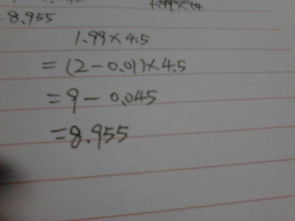 =8.955
1.99×4.5
=(2-0.01)×4.5
=9-0.045
=8.955